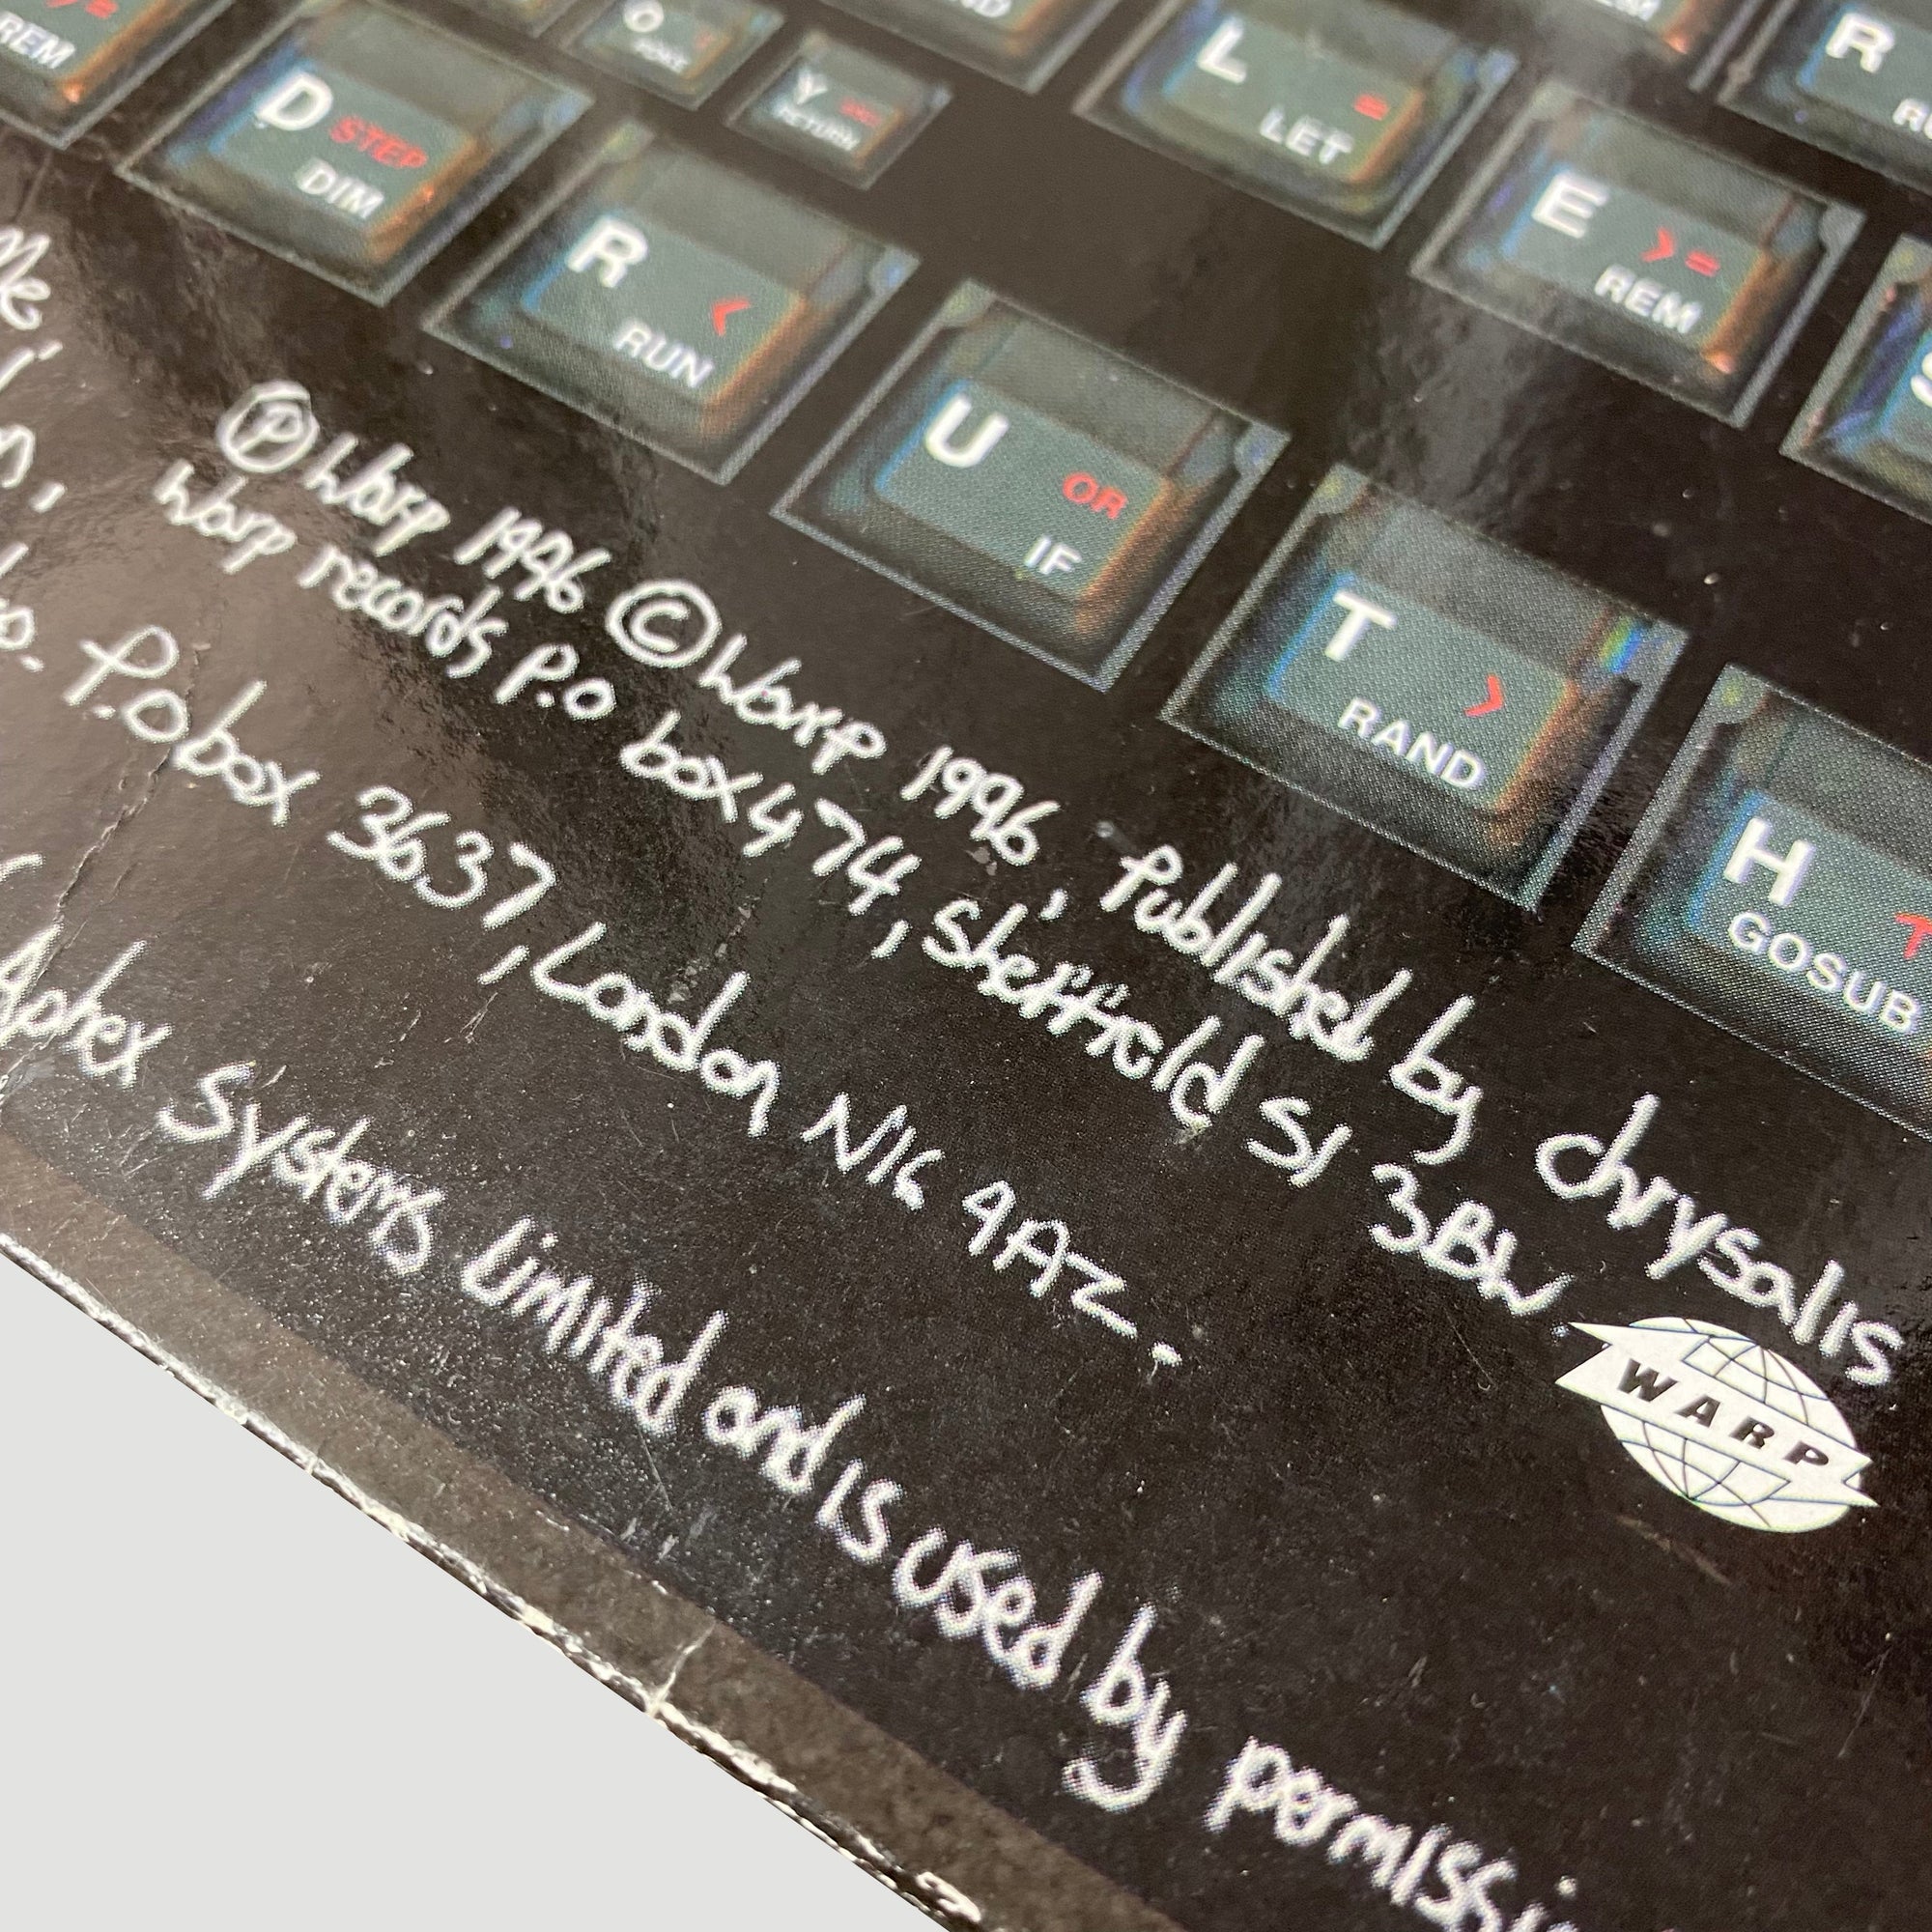 REM
D STEP
DIM
O
Y
RETURN
L =
LET
E >=
REM
R
R <
RUN
U OR
IF
T >
RAND
H T
GOSUB
Me
℗ Warp 1996 © Warp 1996, Published by chrysalis
Warp records P.O box 474, Sheffield S1 3BW.
P.O box 3637, London N16 9AZ.
Aphex Systems Limited and is used by permissi
WARP